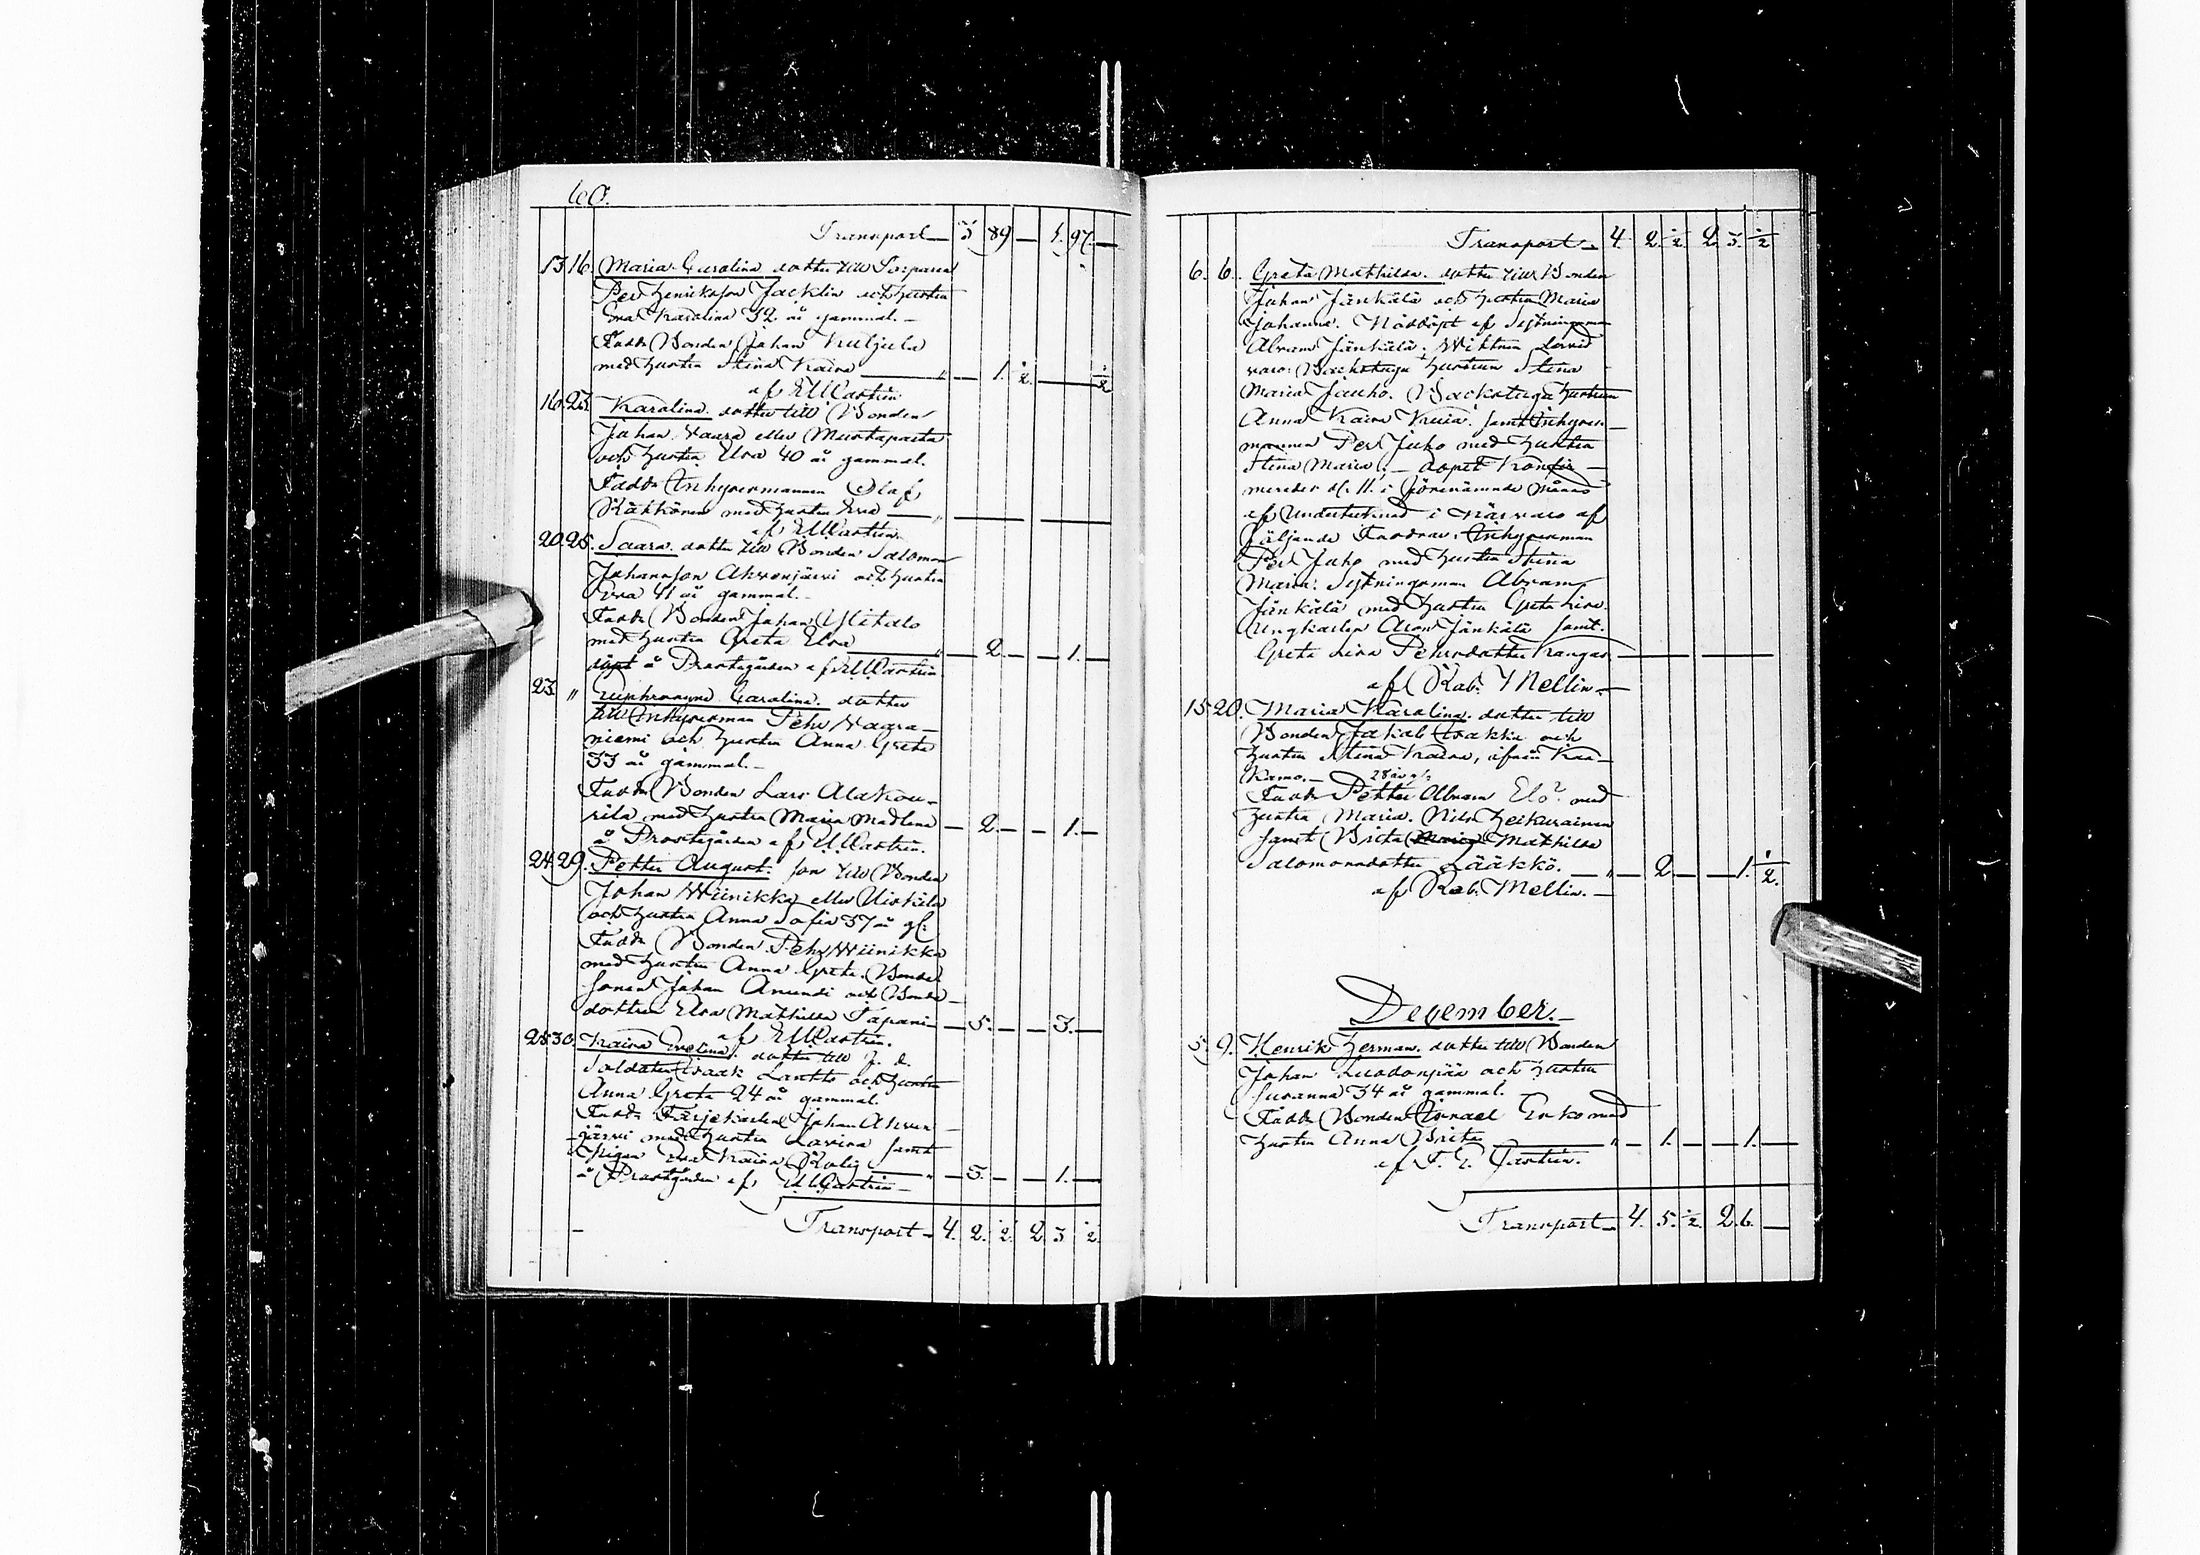 60.
Transport 3 89 — 1. 97. —
13. 16. Maria Carolina dotter till Torparen
Per Henriksson Jacklin och hustru
Eva Karolina 32 år gammal. —
Fadd: Bonden Johan Kuljula
med hustru Stina Kaisa — 1. ½ — ½
af E U Castrén
16. 23. Karolina dotter till Bonden
Johan Vaara eller Mustaparta
och hustru Elsa 40 år gammal.
Fadd: Inhysesmannen Olaf
Räkkönen med hustru Eva
af E U Castrén.
20. 25. Saara dotter till Bonden Salomon
Johansson Ahvenjärvi och hustru
Eva 41 år gammal. —
Fadd: Bonden Johan Ylitalo
med hustru Greta Elsa — 2. — — 1. —
döpt å Prostgården af E U Castrén
23. " Euphrosyne Carolina. dotter
till Inhysesman Pehr Vaara-
niemi och hustru Anna Greta
33 år gammal. —
Fadd: Bonden Lars Alakou-
rila med hustru Maria Madlena — 2. — — 1. —
å Prostgården af E U Castrén.
24. 29. Petter August. son till Bonden
Johan Wiinikka eller Uiskila
och hustru Anna Sofia 37 år gl:
Fadd: Bonden Pehr Wiinikka
med hustru Anna Greta. Bonde
sonen Johan Anundi och Bonde-
dottren Elsa Mathilda Tapani — 5. — — 3. —
af E U Castrén.
28 30. Kaisa Evelina. dotter till f. d.
Soldaten Isaak Lantto och hustru
Anna Greta 24 år gammal.
Fadd: Färjekarlen Johan Ahven-
järvi med hustru Lovisa samt
Pigan Eva Kaisa Rolig — 3. — — 1. —
å Prostgården af E U Castrén —
Transport — 4. 2. ½. 2. 3 ½.
Transport — 4. 2. ½ 2. 3. ½
6. 6. Greta Mathilda. dotter till Bonden
Johan Jänkälä och hustru Maria
Johanna. Nöddöpt af Sytningsman
Abram Jänkälä; Wittnen
varo: Backstugu hustrun Stina
Maria Jauho. Backstugu hustrun
Anna Kaisa samt Inhyses-
mannen Per Juho med hustru
Stina Maria; — dopet konfir-
merades d. 11. i förenämnde månad
af Undertecknad i närvaro af
följande Faddrar: Inhysesman
Per Juho med hustru Stina
Maria: Sytningsman Abram
Jänkälä med hustru Greta Lisa.
Ungkarlen Aron Jänkälä samt.
Greta Lisa Pehrsdotter Kangas
af Rob. Mellin. —
15 20. Maria Karolina. dotter till
Bonden Jakob Isakka och
hustru Stina Kaisa, ifrån Kau-
kamo. — 28 år gl.
Fadd: Petter Abram Elo? med
hustru Maria. Nils Heikurainen
samt Brita Maria Mathilda
Salomonsdotter Lääkkö. — 2 — — 1. ½.
af Rob. Mellin. —
December. —
5. 9. Henrik Herman. dotter till Bonden
Johan Luodonpää och hustru
Susanna 34 år gammal.
Fadd: Bonden Israel Erko med
hustru Anna Brita — 1. — — 1. —
af F. E. Castrén.
Transport — 4. 5. ½. 2. 6. —